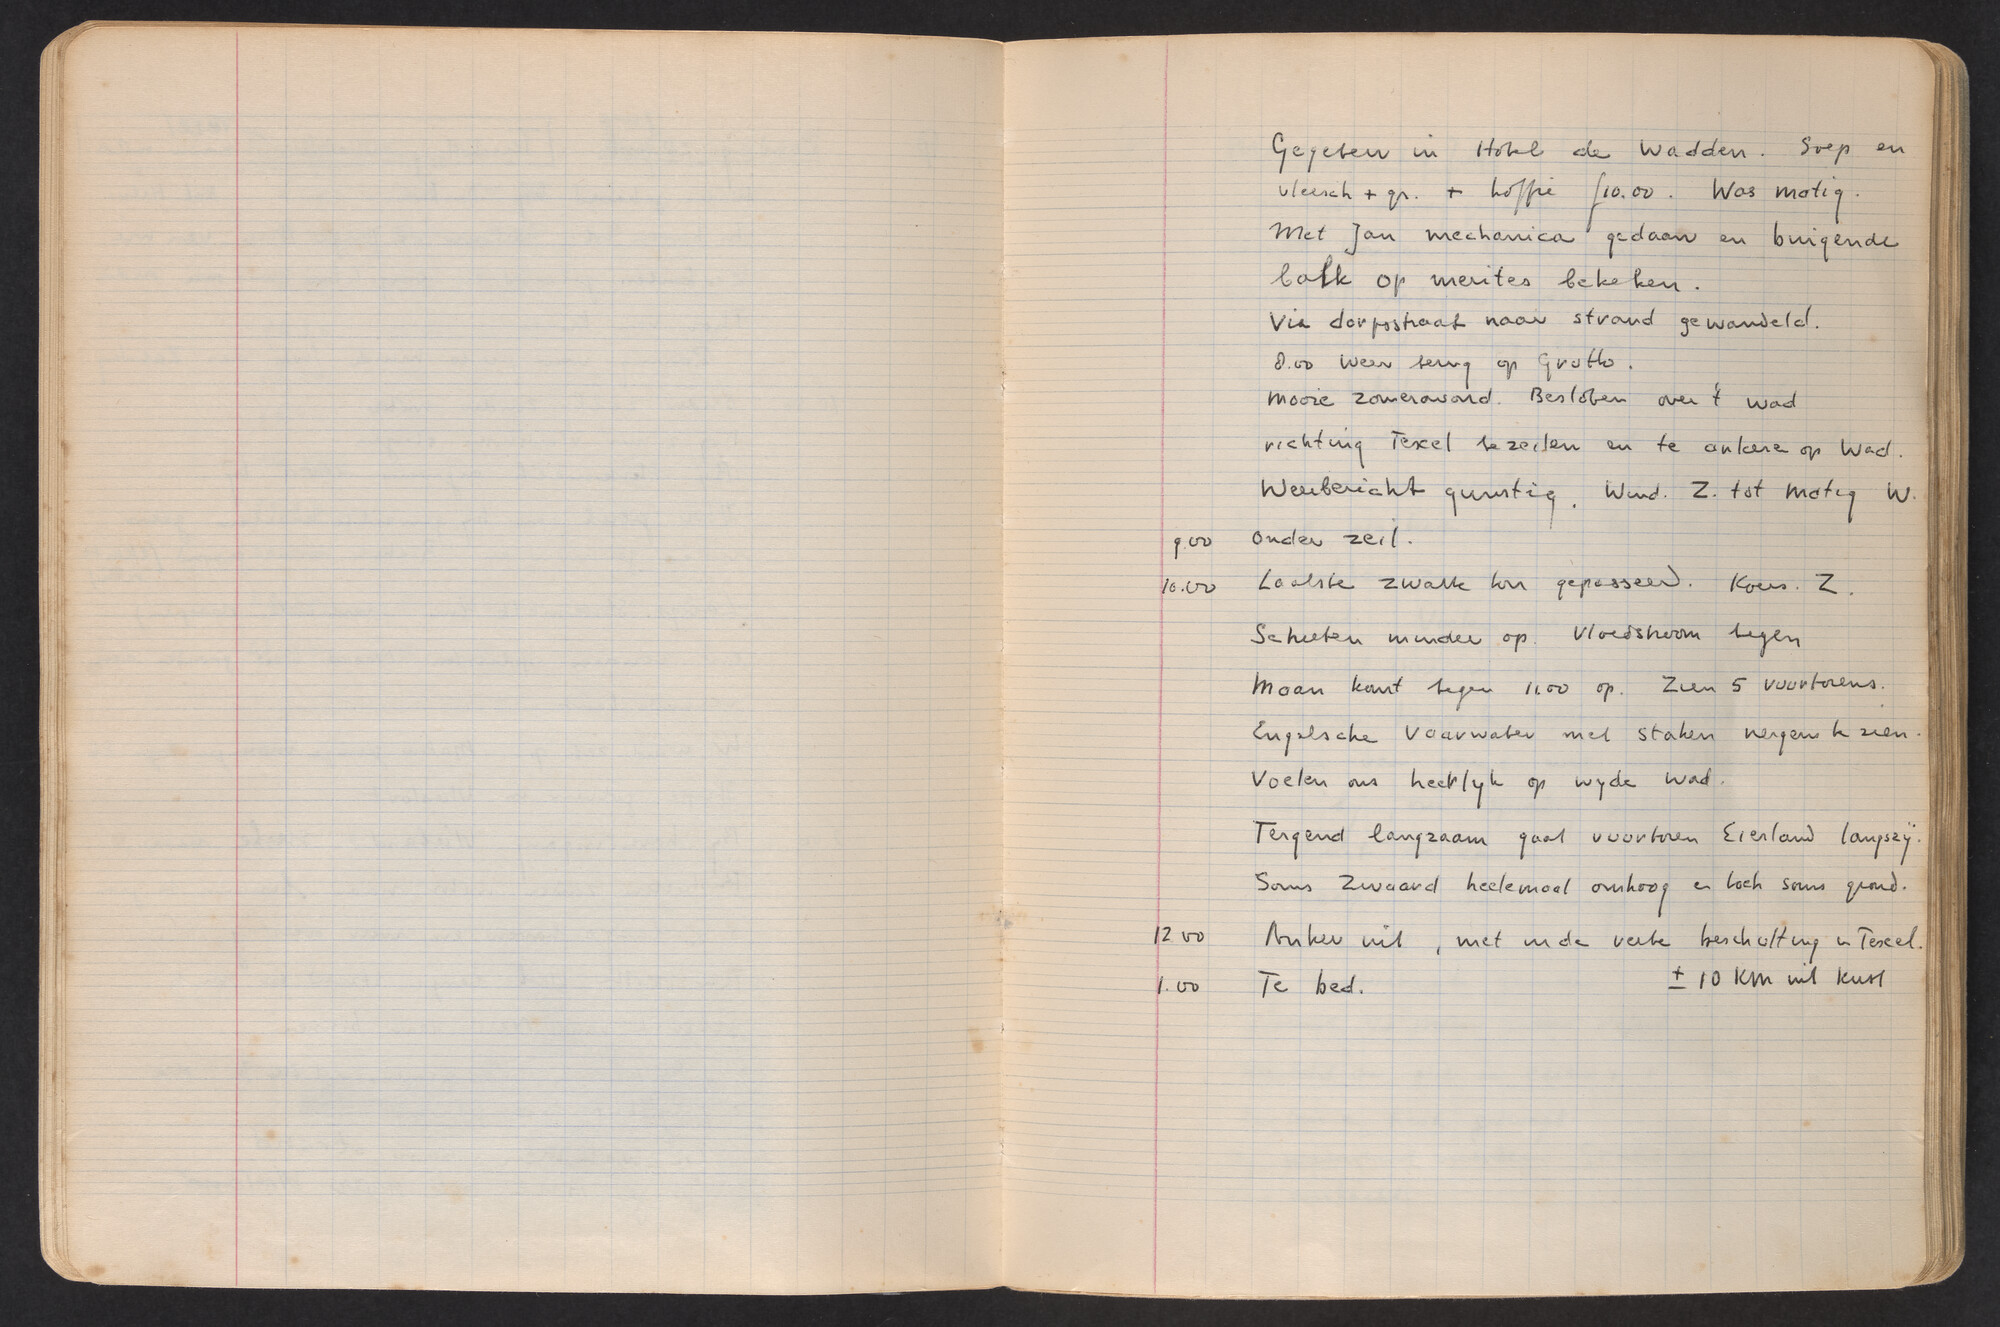 Gegeten in Hotel de Wadden. Soep en
vleesch + gr. + koffie f10.00. Was matig.
Met Jan mechanica gedaan en buigende
balk op merites bekeken.
Via dorpsstraat naar strand gewandeld.
8.00 weer terug op Grutto.
Mooie zomeravond. Besloten over 't wad
richting Texel te zeilen en te ankere op Wad.
Weerbericht gunstig. Wind. Z. tot matig W.
9.00 Onder zeil.
10.00 Laatste zwarte ton gepasseerd. Koers. Z.
Schieten minder op. Vloedstroom tegen
Maan komt tegen 11.00 op. Zien 5 vuurtorens.
Engelsche Vaarwater met staken nergens te zien.
Voelen ons heerlyk op wyde wad.
Tergend langzaam gaat vuurtoren Eierland langszÿ.
Soms zwaard heelemaal omhoog en toch soms grond.
12.00 Anker uit, met in de verte beschutting v Texel.
± 10 KM uit kust
1.00 Te bed.